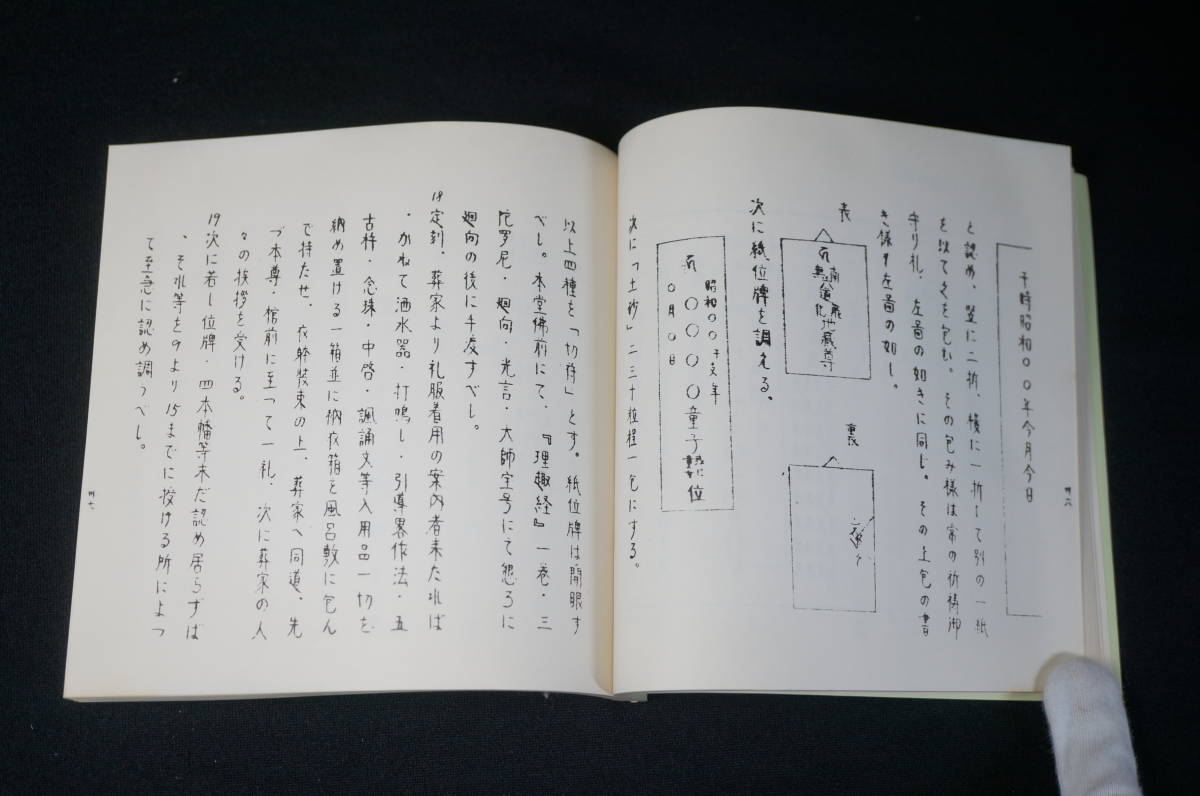 干時昭和〇〇年今月今日
と認め、竪に二折、横に一折して別の一紙
を以て之を包む。その包み様は常の祈祷御
守り札、左図の如きに同じ。その上包の書
き様は左図の如し。
表
南無能化地蔵尊
裏
次に紙位牌を調える。
昭和〇〇干支年
〇〇〇〇童子 或は童女 位
〇月〇日
次に「土砂」二三十粒程一包にする。
四二
以上四種を「切符」とす。紙位牌は開眼す
べし。本堂佛前にて、『理趣経』一巻・三
陀羅尼・廻向・光言・大師宝号にて懇ろに
廻向の後に千度すべし。
18定刻、葬家より礼服着用の案内者来たれば
、かねて洒水器・打鳴し・引導畧作法・五
古杵・念珠・中啓・諷誦文等入用品一切を
納め置ける一箱並に衲衣箱を風呂敷に包ん
で持たせ、衣躰装束の上、葬家へ同道、先
づ本尊・棺前に至って一礼、次に葬家の人
々の挨拶を受ける。
19次に若し位牌・四本幡等未だ認め居らずば
、それ等をのより15までに授ける所によつ
て至急に認め調うべし。